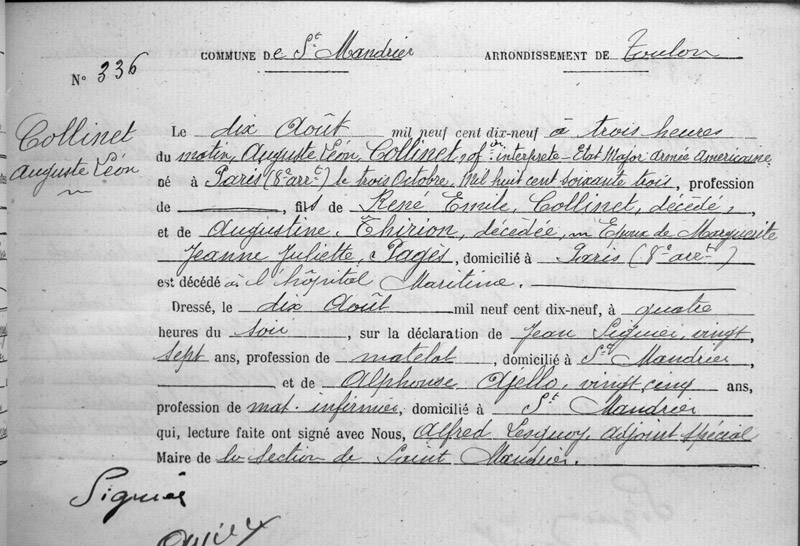 COMMUNE De St Mandrier ARRONDISSEMENT DE Toulon
N° 336
Collinet
Auguste Léon
Le dix Août mil neuf cent dix-neuf à trois heures
du matin, Auguste Léon, Collinet, offer interprete - Etat Major armée Américaine,
né à Paris (8e arrt) le trois Octobre, Mil huit cent soixante trois, profession
de fils de René Emile, Collinet, décédé,
et de Augustine, Thirion, décédée, Epoux de Marguerite
Jeanne Juliette, Pagès, domicilié à Paris (8e arrt)
est décédé à l'hôpital Maritime.
Dressé, le dix Août mil neuf cent dix-neuf, à quatre
heures du soir, sur la déclaration de Jean Siguier, vingt
sept ans, profession de matelot, domicilié à St Mandrier,
et de Alphonse, Ajello, vingt cinq ans,
profession de mat. infirmier, domicilié à St Mandrier
qui, lecture faite ont signé avec Nous, Alfred adjoint spécial
Maire de la section de Saint Mandrier.